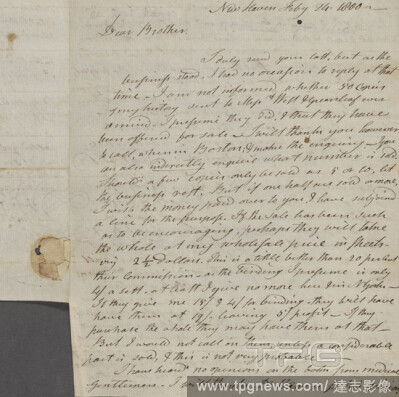 New Haven Feby 24. 1800
Dear Brother.
I duly recd your lett, but as the
business stood I had no occasion to reply at that
time. I am not informed whether 50 Copies
of my history sent to Messrs West & Greenleaf ever
arrived. I presume they did, & that they have
been offered for sale. I will thank you however
to call, when in Boston, & make the enquiry. You
can also indirectly enquire what number is sold.
Should a few Copies only be sold as 5 or 10, let
the business rest. But if one half are sold or more,
I wish the money paid over to you. I have subjoined
a line for the purpose. If the sale has been such
as to be encouraging, perhaps they will take
the whole at my wholesale price in sheets
viz 2½ Dollars. This is a little better than 20 per cent
their Commission as the binding I presume is only
4/ a sett. at the I give no more here & in N York.
If they give me 15/ & 4/ for binding they will have
have them at 19/. leaving 5/ profit. If they
purchase the whole they may have them at that
But I would not call on them unless a considerable
part is sold, & this is not very probable.
I have heard no opinions on the book from medical
Gentlemen. I
TPG
www.tpgnews.com / 達志影像